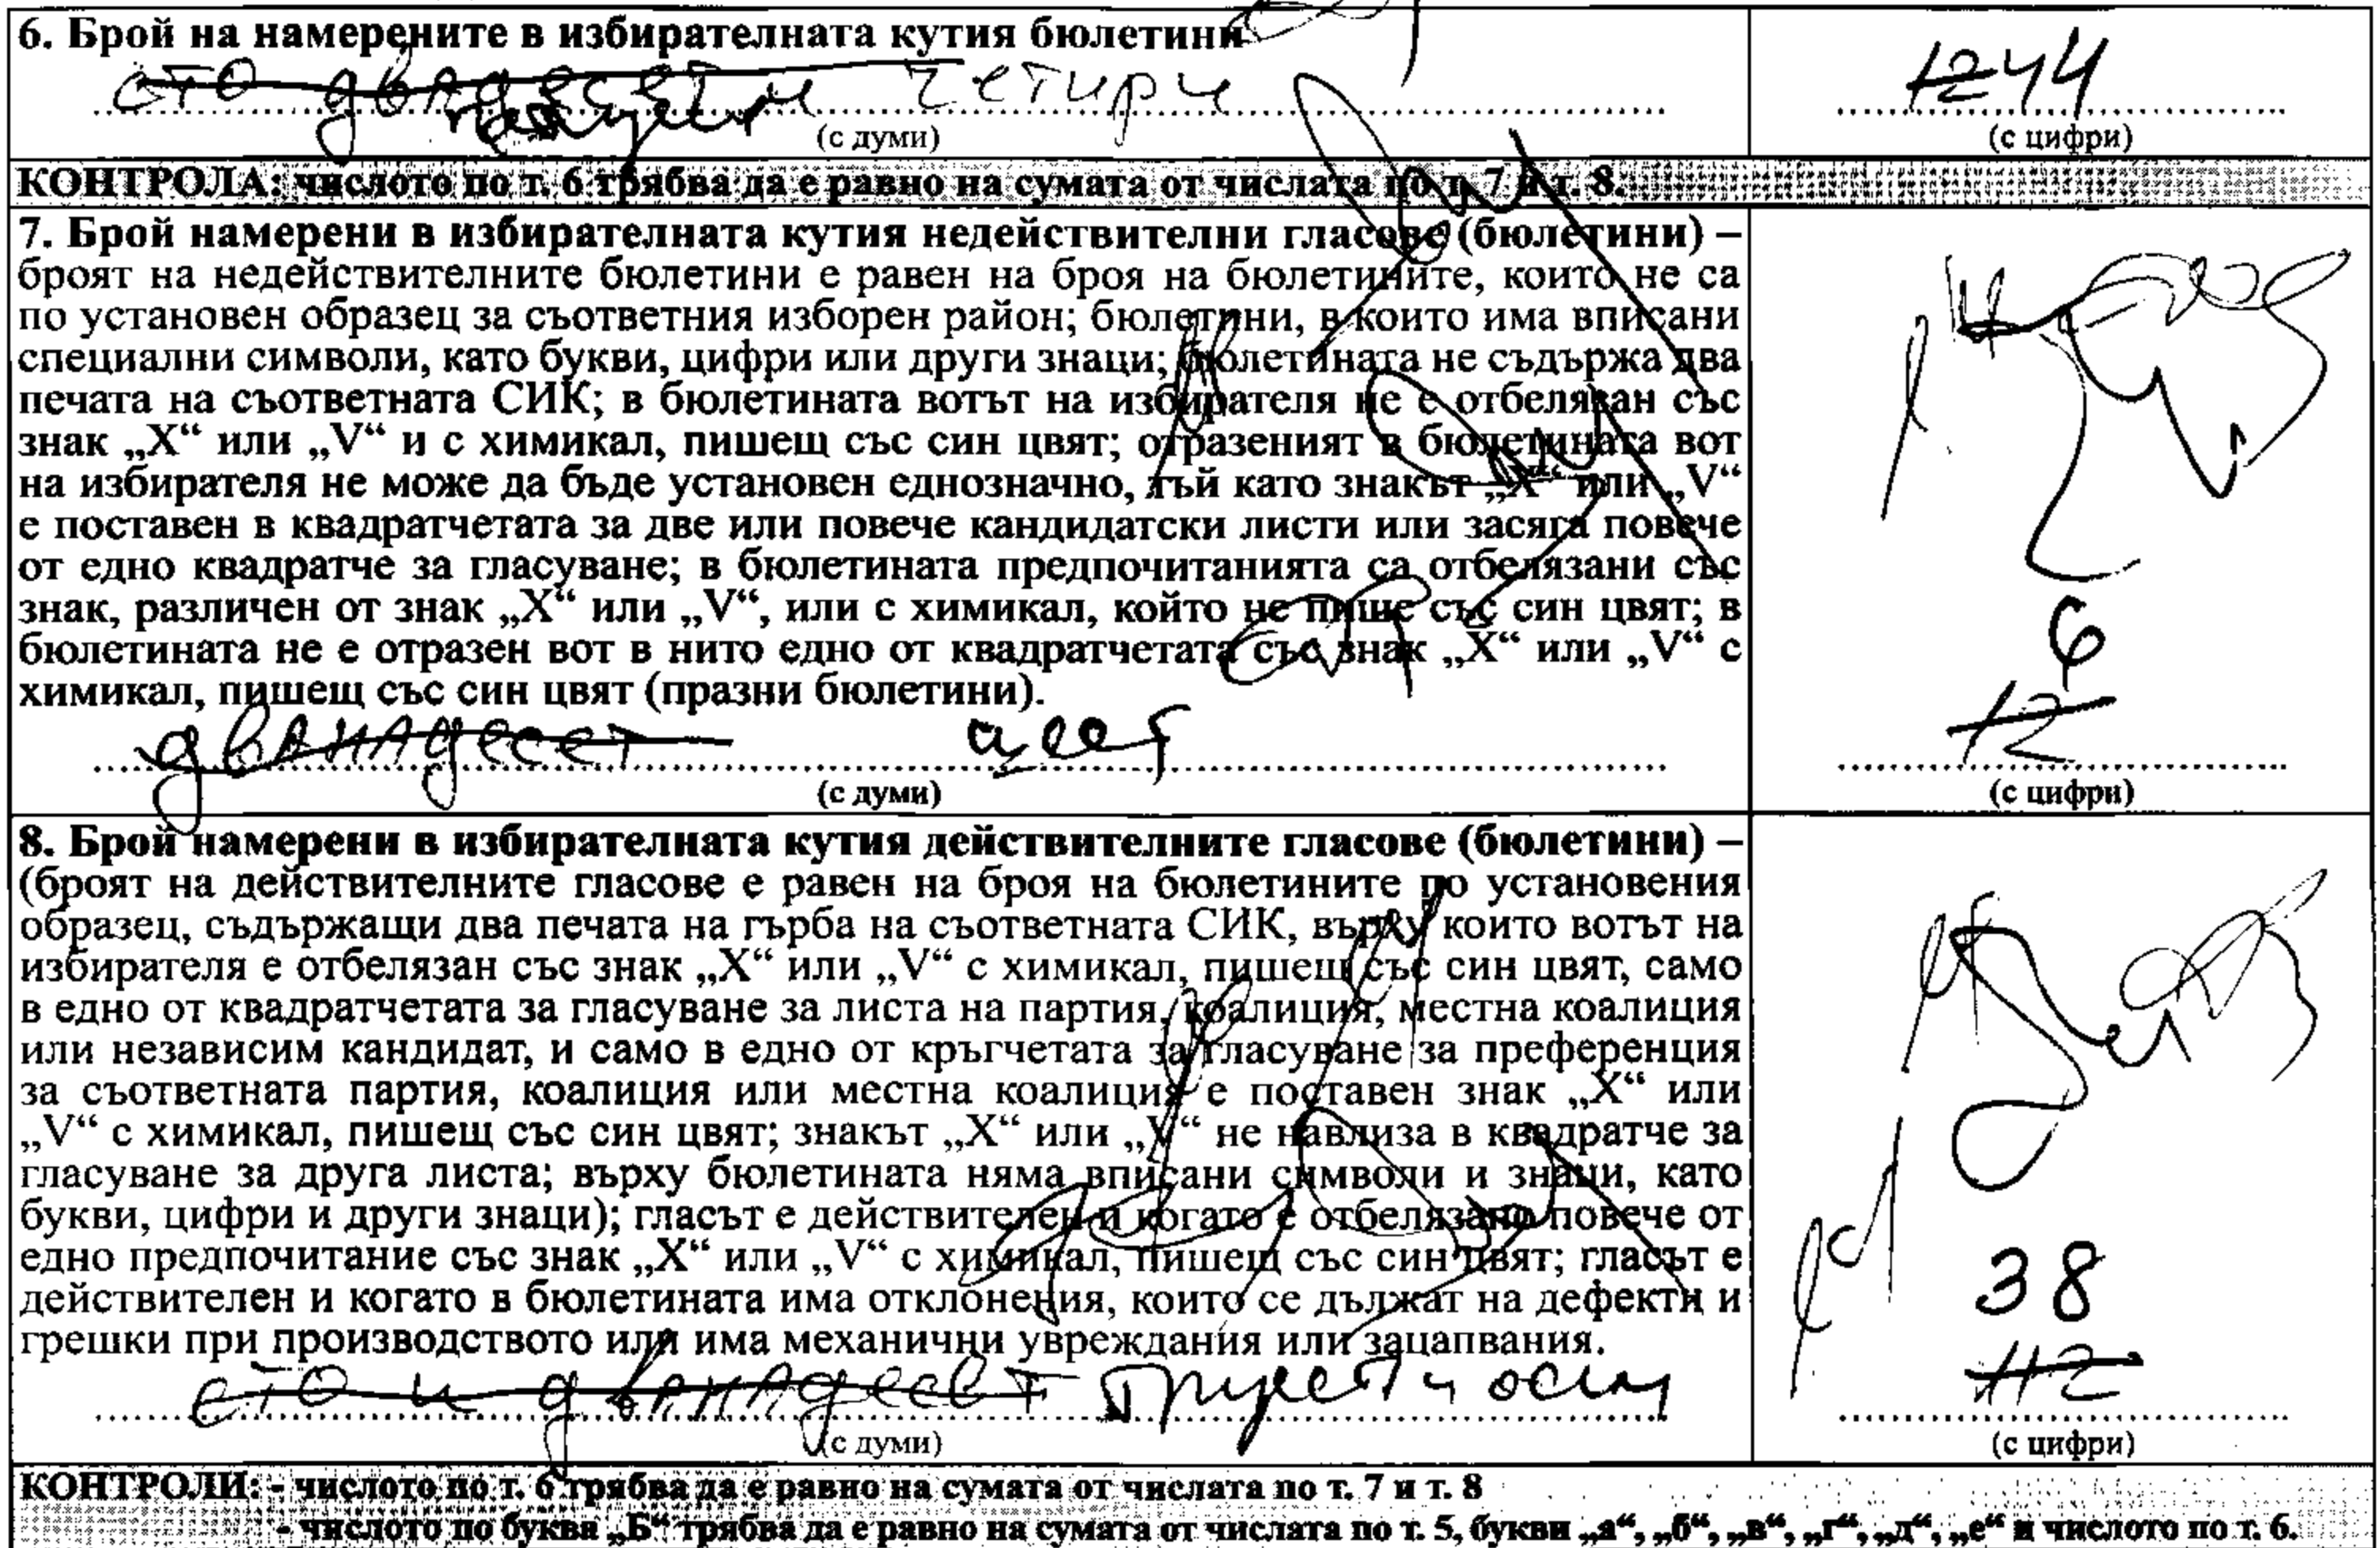 6. Брой на намерените в избирателната кутия бюлетини
сто двадесет и четири
1244
(с думи)
(с цифри)
КОНТРОЛА: числото по т. 6 трябва да е равно на сумата от числата по т. 7 и т. 8.
7. Брой намерени в избирателната кутия недействителни гласове (бюлетини) –
броят на недействителните бюлетини е равен на броя на бюлетините, които не са
по установен образец за съответния изборен район; бюлетини, в които има вписани
специални символи, като букви, цифри или други знаци; бюлетината не съдържа два
печата на съответната СИК; в бюлетината вотът на избирателя не е отбелязан със
знак „X“ или „V“ и с химикал, пишещ със син цвят; отразеният в бюлетината вот
на избирателя не може да бъде установен еднозначно, тъй като знакът „X“ или „V“
е поставен в квадратчетата за две или повече кандидатски листи или засяга повече
от едно квадратче за гласуване; в бюлетината предпочитанията са отбелязани със
знак, различен от знак „X“ или „V“, или с химикал, който не пише със син цвят; в
бюлетината не е отразен вот в нито едно от квадратчетата със знак „X“ или „V“ с
химикал, пишещ със син цвят (празни бюлетини).
6
дванадесет шест
12
(с думи)
(с цифри)
8. Брой намерени в избирателната кутия действителните гласове (бюлетини) –
(броят на действителните гласове е равен на броя на бюлетините по установения
образец, съдържащи два печата на гърба на съответната СИК, върху които вотът на
избирателя е отбелязан със знак „X“ или „V“ с химикал, пишещ със син цвят, само
в едно от квадратчетата за гласуване за листа на партия, коалиция, местна коалиция
или независим кандидат, и само в едно от кръгчетата за гласуване за преференция
за съответната партия, коалиция или местна коалиция е поставен знак „X“ или
„V“ с химикал, пишещ със син цвят; знакът „X“ или „V“ не навлиза в квадратче за
гласуване за друга листа; върху бюлетината няма вписани символи и знаци, като
букви, цифри и други знаци); гласът е действителен и когато е отбелязано повече от
едно предпочитание със знак „X“ или „V“ с химикал, пишещ със син цвят; гласът е
действителен и когато в бюлетината има отклонения, които се дължат на дефекти и
грешки при производството или има механични увреждания или зацапвания.
38
сто и дванадесет тридест и осем
112
(с думи)
(с цифри)
КОНТРОЛИ: - числото по т. 6 трябва да е равно на сумата от числата по т. 7 и т. 8
- числото по буква „Б“ трябва да е равно на сумата от числата по т. 5, букви „а“, „б“, „в“, „г“, „д“, „е“ и числото по т. 6.